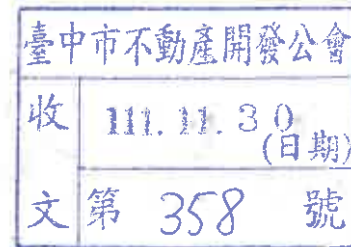 臺中市不動產開發公會
收 111.11.30
(日期)
文 第 358 號